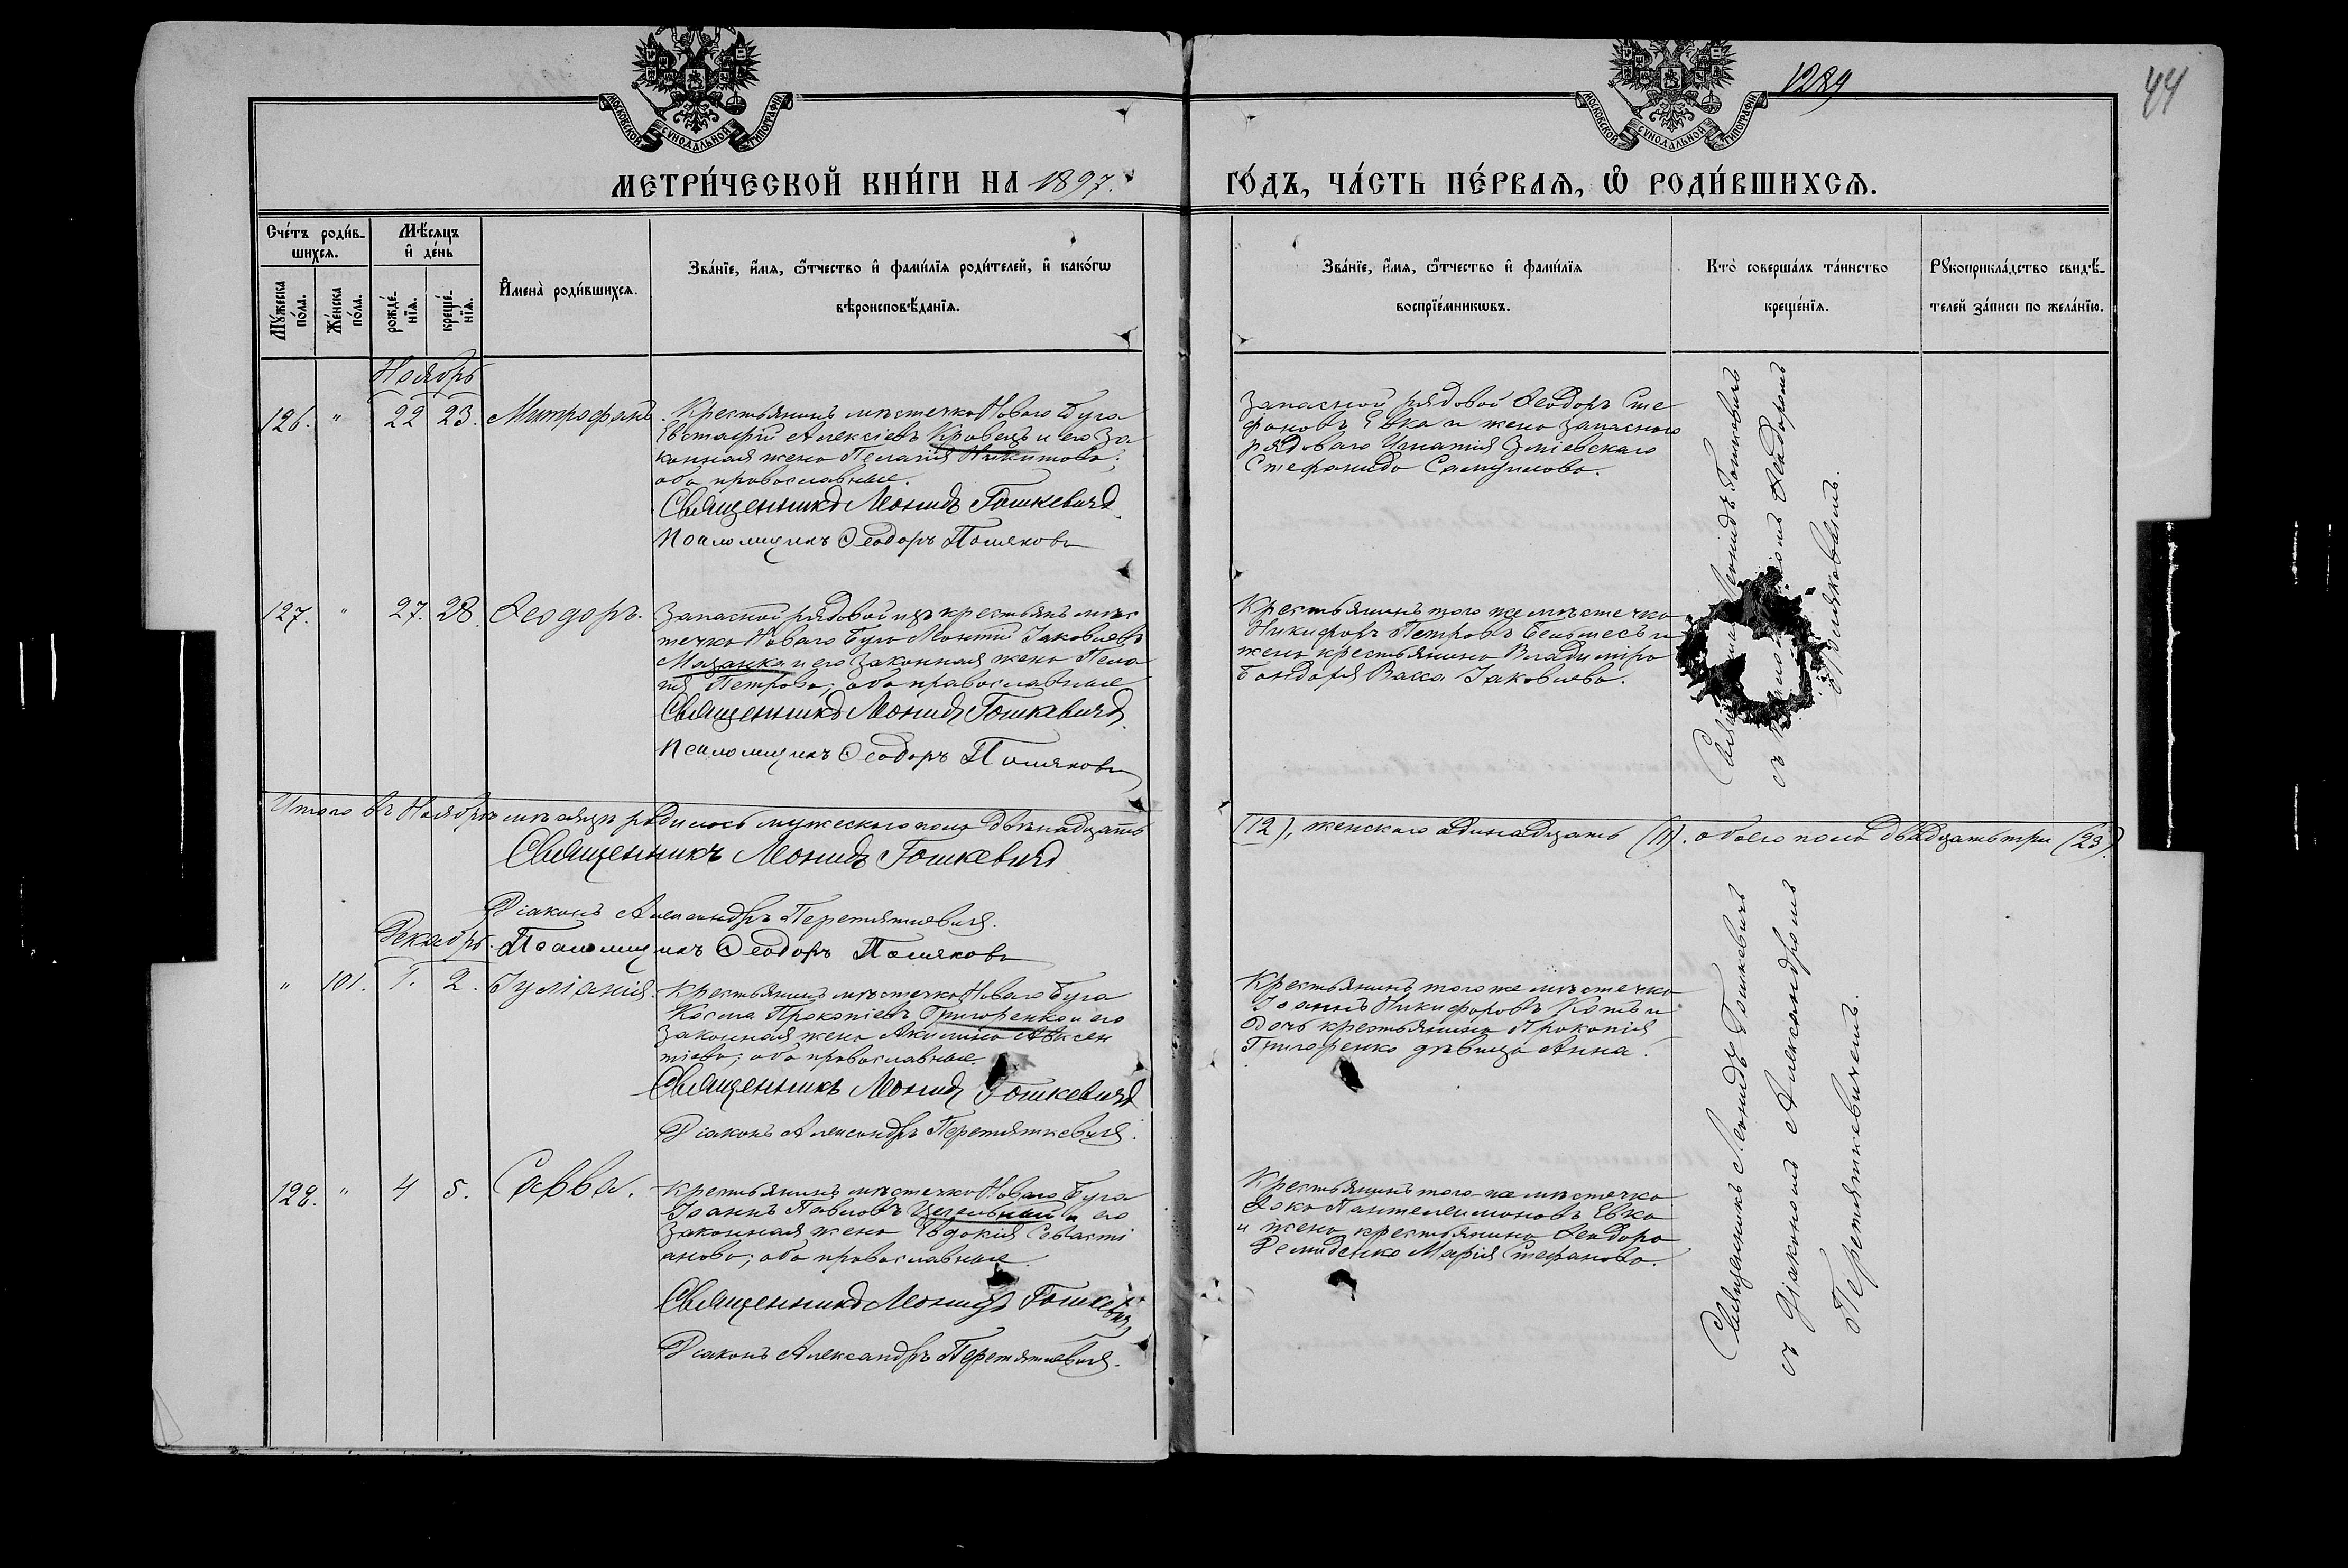 МОСКОВСКОЙ СѴНОДАЛЬНОЙ ТИПОГРАФІИ
МОСКОВСКОЙ СѴНОДАЛЬНОЙ ТИПОГРАФІИ
1289
44
МЕТРИ́ЧЕСКОЙ КНИ́ГИ НА 1897.
ГО́ДЪ, ЧА́СТЬ ПЕ́РВАѦ, Ѽ РОДИ́ВШИХСѦ.
Сче́тъ роди́в-
шихсѧ.
Мꙋ́жеска по́ла.
Же́нска по́ла.
Мѣ́сѧцъ
и҆ де́нь
рожде́-
нїѧ.
креще́-
нїѧ.
И҆мена̀ роди́вшихсѧ.
Зва́нїе, и҆́мѧ, ѻ҆́тчество и҆ фами́лїѧ роди́телей, и҆ како́гѡ
вѣроисповѣ́данїѧ.
Зва́нїе, и҆́мѧ, ѻ҆́тчество и҆ фами́лїѧ
воспрїе́мникѡвъ.
Кто̀ соверша́лъ та́инство
креще́нїѧ.
Рꙋкоприкла́дство свидѣ́-
телей за́писи по жела́нїю.
Ноябрь
126. " 22 23. Митрофанъ.
Крестьянинъ мѣстечка Новаго Буга
Евстафій Алексіевъ Кравецъ и его за
конная жена Пелагія Никитова;
оба православные.
Священникъ Леонидъ Гошкевичъ
Псаломщикъ Ѳеодоръ Поляковъ
Запасной рядовой Ѳеодоръ Сте
фановъ Евка и жена запаснаго
рядоваго Игнатія Зміевскаго
Стефанида Самуилова.
127. " 27. 28. Ѳеодоръ.
Запасной рядовой изъ крестьянъ мѣс
течка Новаго Буга Леонтій Іаковлевъ
Мазанка и его законная жена Пела
гія Петрова; оба православные
Священникъ Леонидъ Гошкевичъ
Псаломщикъ Ѳеодоръ Поляковъ
Крестьянинъ того же мѣстечка
Никифоръ Петровъ и
жена крестьянина Владиміра
Бондаря Васса Іаковлева.
Священникъ Леонидъ Гошкевичъ
съ Ѳеодоромъ
Поляковымъ.
Итого въ Ноябрѣ мѣсяцѣ родилось мужескаго пола двѣнадцать
(12), женскаго одинадцать (11). обоего пола двадцать три (23).
Священникъ Леонидъ Гошкевичъ
Діаконъ Александръ Перетяткевичъ.
Псаломщикъ Ѳеодоръ Поляковъ
Декабрь.
" 101. 1. 2. Іуліанія.
Крестьянинъ мѣстечка Новаго Буга
Косма Прокопіевъ Григоренко и его
законная жена Акилина Авксен
тіева; оба православные.
Священникъ Леонидъ Гошкевичъ
Діаконъ Александръ Перетяткевичъ.
Крестьянинъ того же мѣстечка
Іоаннъ Никифоровъ Котъ и
дочь крестьянина Прокопія
Григоренко дѣвица Анна.
128. " 4 5. Савва.
Крестьянинъ мѣстечка Новаго Буга
Іоаннъ Павловъ и его
законная жена Евдокія Севасті
анова; оба православные.
Священникъ Леонидъ Гошкевичъ
Діаконъ Александръ Перетяткевичъ.
Крестьянинъ того-же мѣстечка
Ѳока Пантелеимоновъ Евка
и жена крестьянина Ѳеодора
Демиденко Марія Стефанова.
Священникъ Леонидъ Гошкевичъ
съ діакономъ Александромъ
Перетяткевичемъ.